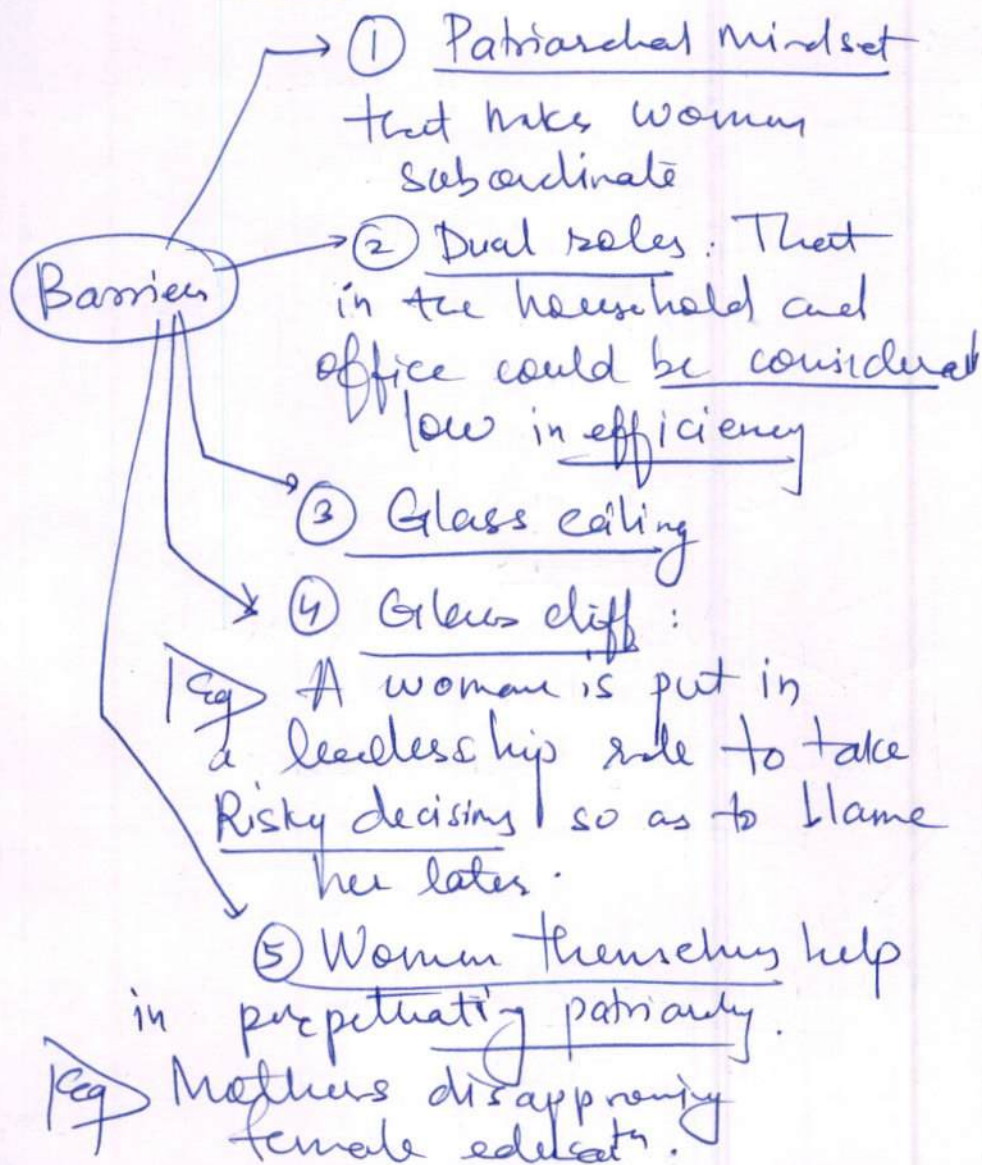 ① Patriarchal Mindset
that makes women
subordinate
Barriers
② Dual roles: That
in the household and
office could be considered
low in efficiency
③ Glass ceiling
④ Glass cliff:
Eg A woman is put in
a leadership role to take
Risky decisions so as to blame
her later.
⑤ Women themselves help
in perpethating patriarchy.
Eg Mothers disapproving
female educatn.